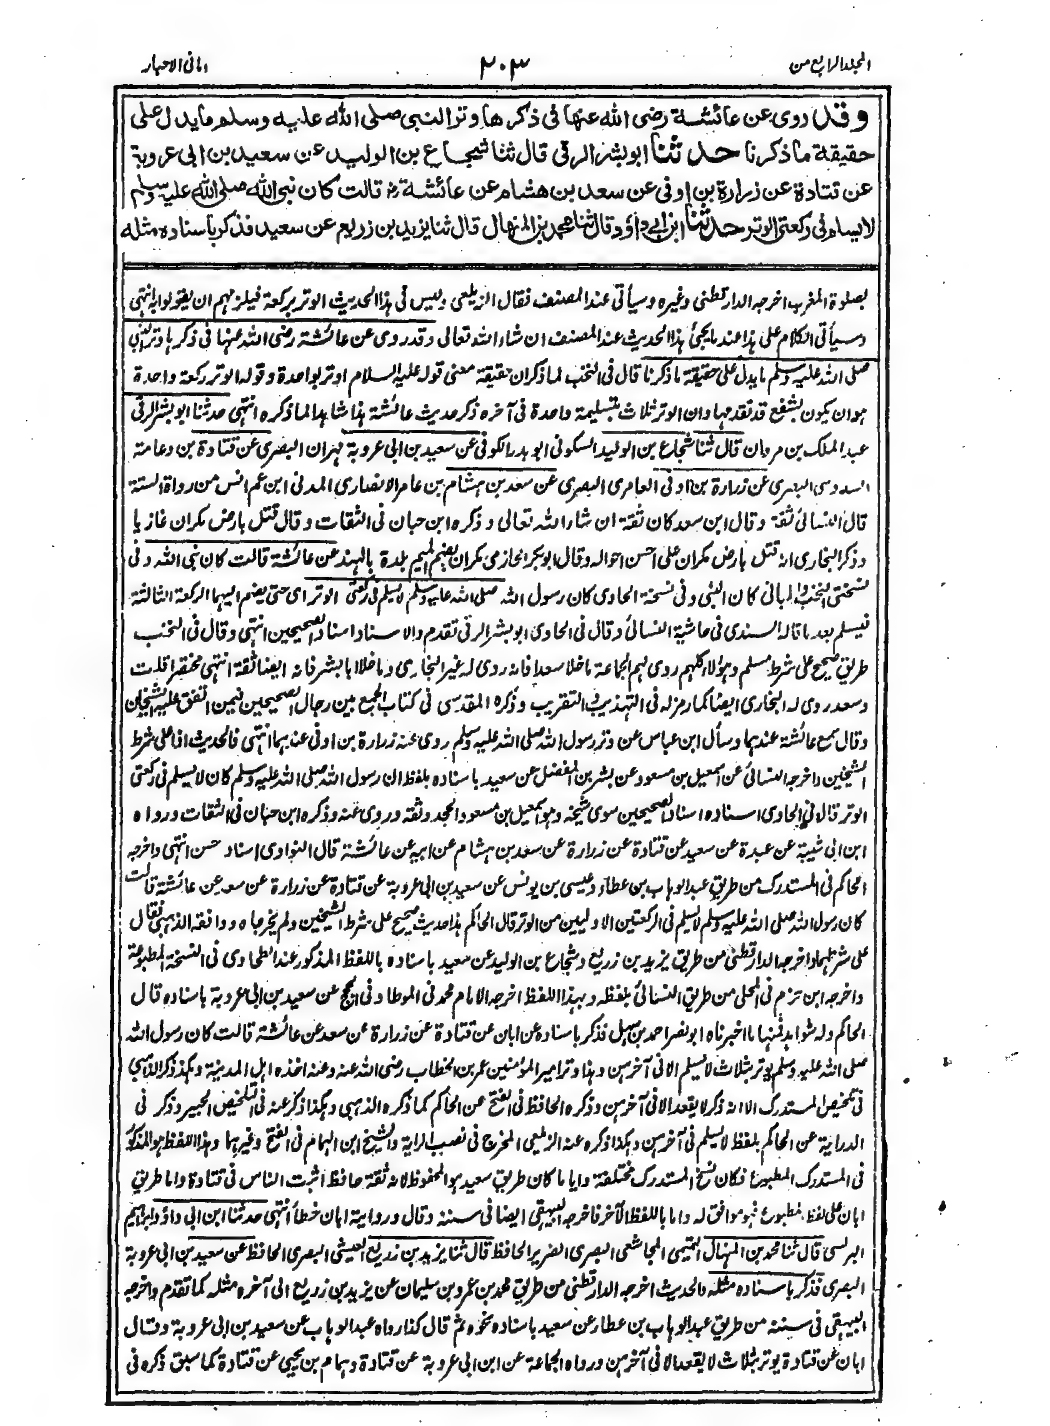 المجلد الرابع من
٢٠٣
امانی الاحبار
وقد روی عن عائشة رضی الله عنها فی ذکرها وتر النبی صلی الله علیه وسلم ما یدل علی
حقیقة ما ذکرنا حدثنا ابو بشر الرقی قال ثنا شجاع بن الولید عن سعید بن ابی عروبة
عن قتادة عن زرارة بن اوفی عن سعد بن هشام عن عائشة رض قالت کان نبی الله صلی الله علیه وسلم
لا یسلم فی رکعتی الوتر حدثنا ابن ابی داؤد قال ثنا محمد بن المنهال قال ثنا یزید بن زریع عن سعید فذکر باسناده مثله
بصلوة المغرب اخرجه الدارقطنی وغیره وسیأتی عند المصنف فقال الزیلعی ولیس فی هذا الحدیث الوتر برکعة فیلزمهم ان یقولوا به انتهی
وسیأتی الکلام علی هذا عند ما یجیٔ هذا الحدیث عند المصنف ان شاء الله تعالی وقد روی عن عائشة رضی الله عنها فی ذکرها وتر النبی
صلی الله علیه وسلم ما یدل علی حقیقة ما ذکرنا قال فی النخب لما ذکر ان حقیقة معنی قوله علیه السلام اوتر بواحدة وقوله الوتر رکعة واحدة
هو ان یکون بشفع قد تقدمها وان الوتر ثلاث بتسلیمة واحدة فی آخره ذکر حدیث عائشة هذا شاهدا لما ذکره انتهی حدثنا ابو بشر الرقی
عبد الملک بن مروان قال ثنا شجاع بن الولید السکونی ابو بدر الکوفی عن سعید بن ابی عروبة مهران البصری عن قتادة بن دعامة
السدوسی البصری عن زرارة بن اوفی العامری البصری عن سعد بن هشام بن عامر الانصاری المدنی ابن عم انس من رواة الستة
قال النسائی ثقة وقال ابن سعد کان ثقة ان شاء الله تعالی وذکره ابن حبان فی الثقات وقال قتل بارض مکران غازیا
وذکر البخاری انه قتل بارض مکران علی احسن احواله وقال ابو بکر الحازمی مکران بضم المیم بلدة بالهند عن عائشة قالت کان نبی الله وفی
نسختی النخب والمبانی کان النبی وفی نسخة الحاوی کان رسول الله صلی الله علیه وسلم لا یسلم فی رکعتی الوتر ای حتی یضم الیهما الرکعة الثالثة
فیسلم بعد ما قاله السندی فی حاشیة النسائی وقال فی الحاوی ابو بشر الرقی تقدم والاسناد اسناد الصحیحین انتهی وقال فی النخب
طریق صحیح علی شرط مسلم وهؤلاء کلهم روی لهم الجماعة ما خلا سعدا فانه روی له غیر البخاری وما خلا ابا بشر فانه ایضا ثقة انتهی مختصرا قلت
وسعد روی له البخاری ایضا کما رمز له فی التهذیب والتقریب وذکره المقدسی فی کتاب الجمع بین رجال الصحیحین فیمن اتفق علیه الشیخان
وقال سمع عائشة عندهما وسأل ابن عباس عن وتر رسول الله صلی الله علیه وسلم روی عنه زرارة بن اوفی عندهما انتهی فالحدیث اذا علی شرط
الشیخین واخرجه النسائی عن اسمعیل بن مسعود عن بشر بن المفضل عن سعید باسناده بلفظ ان رسول الله صلی الله علیه وسلم کان لا یسلم فی رکعتی
الوتر قال فی الحاوی اسناده اسناد الصحیحین سوی شیخه وهو اسمعیل بن مسعود الجحدری وثقه وروی عنه وذکره ابن حبان فی الثقات ورواه
ابن ابی شیبة عن عبدة عن سعید عن قتادة عن زرارة عن سعد بن هشام عن ابیه عن عائشة قال النواوی اسناد حسن انتهی واخرجه
الحاکم فی المستدرک من طریق عبد الوهاب بن عطاء وعیسی بن یونس عن سعید بن ابی عروبة عن قتادة عن زرارة عن سعد عن عائشة قالت
کان رسول الله صلی الله علیه وسلم لا یسلم فی الرکعتین الاولیین من الوتر قال الحاکم هذا حدیث صحیح علی شرط الشیخین ولم یخرجاه ووافقه الذهبی فقال
علی شرطهما واخرجه الدارقطنی من طریق یزید بن زریع وشجاع بن الولید عن سعید باسناده باللفظ المذکور عند الطحاوی فی النسخة المطبوعة
واخرجه ابن حزم فی المحلی من طریق النسائی بلفظه وبهذا اللفظ اخرجه الامام محمد فی الموطا وفی الحج عن سعید بن ابی عروبة باسناده قال
الحاکم وله شواهد فمنها ما اخبرناه ابو نصر احمد بن سهل فذکر باسناده عن ابان عن قتادة عن زرارة عن سعد عن عائشة قالت کان رسول الله
صلی الله علیه وسلم یوتر بثلاث لا یسلم الا فی آخرهن وهذا وتر امیر المؤمنین عمر بن الخطاب رضی الله عنه وعنه اخذه اهل المدینة وهکذا ذکر الذهبی
فی تلخیص المستدرک الا انه ذکر لا یقعد الا فی آخرهن وذکره الحافظ فی الفتح عن الحاکم کما ذکره الذهبی وهکذا ذکر عنه فی التلخیص الحبیر وذکر فی
الدرایة عن الحاکم بلفظ لا یسلم فی آخرهن وهکذا ذکره عنه الزیلعی المخرج فی نصب الرایة والشیخ ابن الهمام فی الفتح وغیرهما وهذا اللفظ هو المذکور
فی المستدرک المطبوع فکان نسخ المستدرک مختلفة وایا ما کان طریق سعید هو المحفوظ لانه ثقة حافظ اثبت الناس فی قتادة واما طریق
ابان علی لفظ المطبوع فهو موافق له واما باللفظ الآخر فاخرجه البیهقی ایضا فی سننه وقال وروایة ابان خطأ انتهی حدثنا ابن ابی داؤد ابراهیم
البرلسی قال ثنا محمد بن المنهال التیمی المجاشعی البصری الضریر الحافظ قال ثنا یزید بن زریع العیشی البصری الحافظ عن سعید بن ابی عروبة
البصری فذکر باسناده مثله والحدیث اخرجه الدارقطنی من طریق محمد بن عمرو بن سلیمان عن یزید بن زریع الی آخره مثله کما تقدم واخرجه
البیهقی فی سننه من طریق عبد الوهاب بن عطاء عن سعید باسناده نحوه ثم قال کذا رواه عبد الوهاب عن سعید بن ابی عروبة وقال
ابان عن قتادة یوتر بثلاث لا یقعد الا فی آخرهن ورواه الجماعة عن ابن ابی عروبة عن قتادة وهمام بن یحیی عن قتادة کما سبق ذکره فی